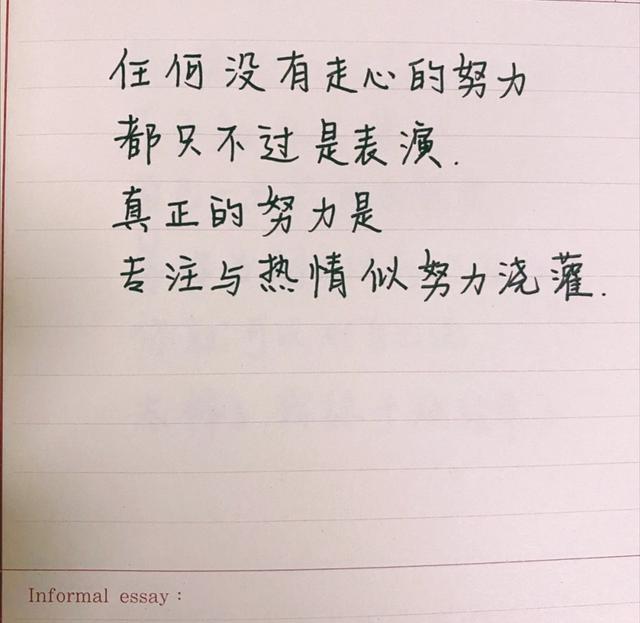 任何没有走心的努力
都只不过是表演.
真正的努力是
专注与热情似努力浇灌.
Informal essay :